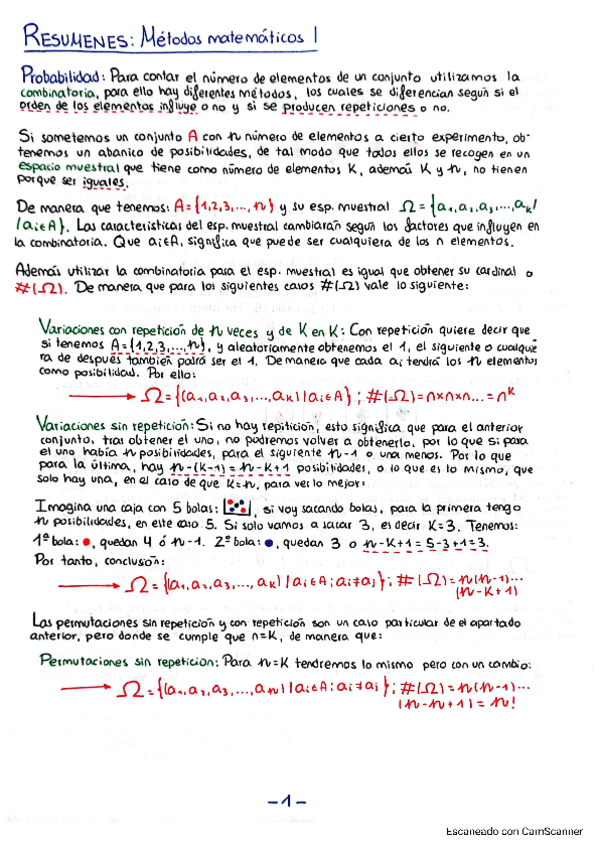 RESUMENES: Métodos matemáticos I
Probabilidad: Para contar el número de elementos de un conjunto utilizamos la
combinatoria, para ello hay diferentes métodos, los cuales se diferencian según si el
orden de los elementos influye o no y si se producen repeticiones o no.
Si sometemos un conjunto A con n número de elementos a cierto experimento, ob-
tenemos un abanico de posibilidades, de tal modo que todos ellos se recogen en un
espacio muestral que tiene como número de elementos K, además K y n, no tienen
porque ser iguales.
De manera que tenemos: A={1,2,3,...,n} y su esp. muestral Ω={a₁,a₂,a₃,...,aₖ/
/aᵢ∈A}. Las características del esp. muestral cambiarán según los factores que influyen en
la combinatoria. Que aᵢ∈A, significa que puede ser cualquiera de los n elementos.
Además utilizar la combinatoria para el esp. muestral es igual que obtener su cardinal o
#(Ω). De manera que para los siguientes casos #(Ω) vale lo siguiente:
Variaciones con repetición de n veces y de K en K: Con repetición quiere decir que
si tenemos A={1,2,3,...,n}, y aleatoriamente obtenemos el 1, el siguiente o cualquie
ra de después también podrá ser el 1. De manera que cada aᵢ tendrá los n elementos
como posibilidad. Por ello:
→ Ω={(a₁,a₂,a₃,...,aₖ)/aᵢ∈A}; #(Ω)=n×n×n...=nᴷ
Variaciones sin repetición: Si no hay repitición, esto significa que para el anterior
conjunto, tras obtener el uno, no podremos volver a obtenerlo, por lo que si para
el uno había n posibilidades, para el siguiente n-1 o una menos. Por lo que
para la última, hay n-(K-1)=n-K+1 posibilidades, o lo que es lo mismo, que
solo hay una, en el caso de que K=n, para verlo mejor:
Imagina una caja con 5 bolas: , si voy sacando bolas, para la primera tengo
n posibilidades, en este caso 5. Si solo vamos a sacar 3, es decir K=3. Tenemos:
1ª bola: , quedan 4 ó n-1. 2ª bola: , quedan 3 o n-K+1=5-3+1=3.
Por tanto, conclusión:
→ Ω={(a₁,a₂,a₃,...,aₖ)/aᵢ∈A; aᵢ≠aⱼ}; #(Ω)=n(n-1)...
(n-K+1)
Las permutaciones sin repetición y con repetición son un caso particular de el apartado
anterior, pero donde se cumple que n=K, de manera que:
Permutaciones sin repeticion: Para n=K tendremos lo mismo pero con un cambio:
→ Ω={(a₁,a₂,a₃,...,aₙ)/aᵢ∈A; aᵢ≠aⱼ}; #(Ω)=n(n-1)...
(n-n+1)=n!
-1-
Escaneado con CamScanner